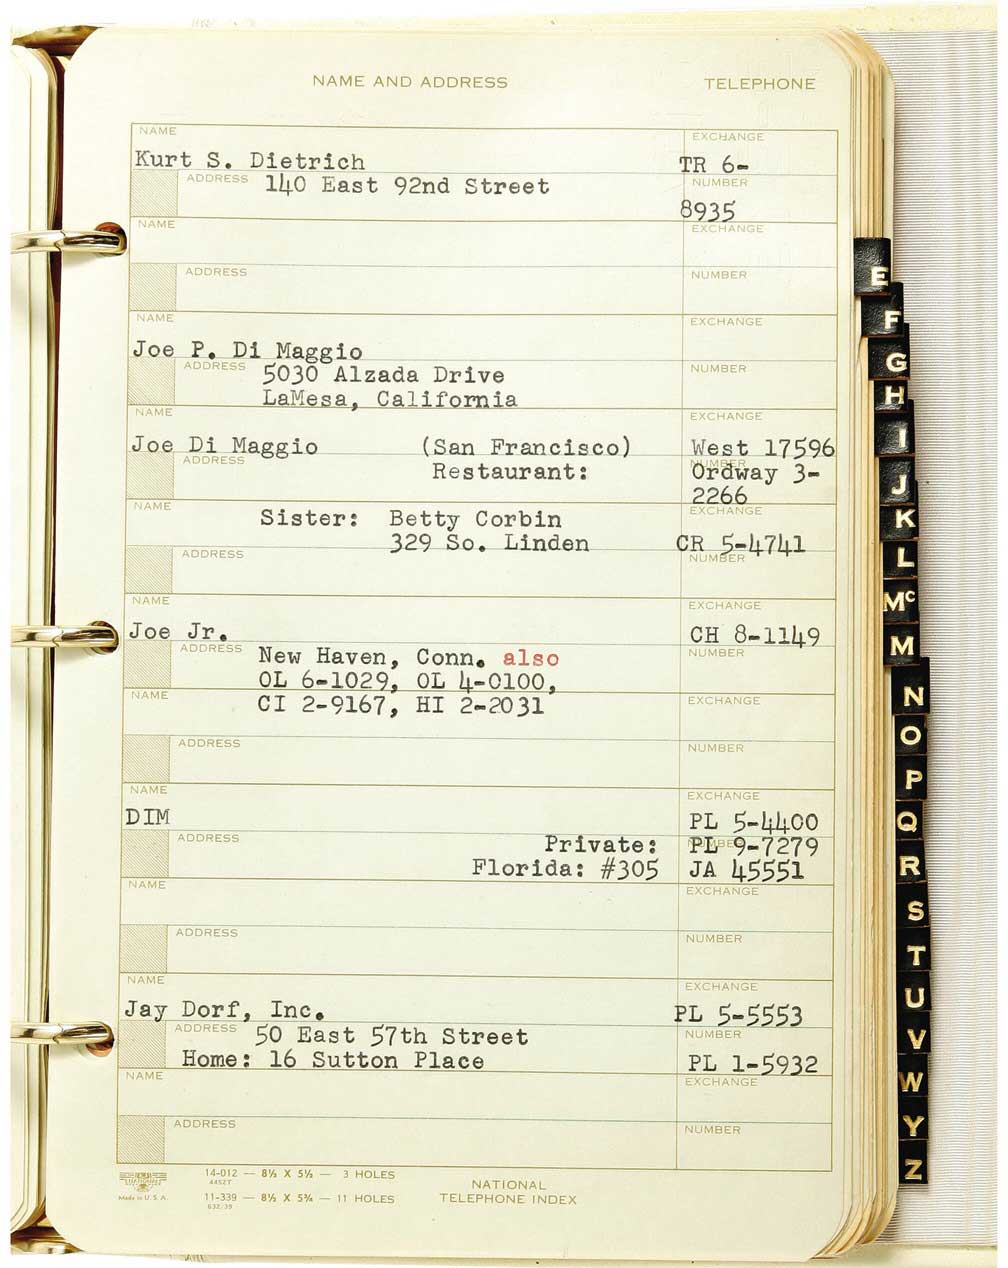 NAME AND ADDRESS TELEPHONE
NAME EXCHANGE
Kurt S. Dietrich TR 6-
ADDRESS 140 East 92nd Street NUMBER
8935
NAME EXCHANGE
ADDRESS NUMBER
NAME EXCHANGE
Joe P. Di Maggio
ADDRESS 5030 Alzada Drive NUMBER
LaMesa, California
NAME EXCHANGE
Joe Di Maggio (San Francisco) West 17596
ADDRESS Restaurant: NUMBER Ordway 3-
2266
NAME EXCHANGE
Sister: Betty Corbin
329 So. Linden CR 5-4741
ADDRESS NUMBER
NAME EXCHANGE
Joe Jr. CH 8-1149
ADDRESS New Haven, Conn. also NUMBER
OL 6-1029, OL 4-0100,
NAME CI 2-9167, HI 2-2031 EXCHANGE
ADDRESS NUMBER
NAME EXCHANGE
DIM PL 5-4400
ADDRESS Private: NUMBER PL 9-7279
Florida: #305 JA 45551
NAME EXCHANGE
ADDRESS NUMBER
NAME EXCHANGE
Jay Dorf, Inc. PL 5-5553
ADDRESS 50 East 57th Street NUMBER
Home: 16 Sutton Place PL 1-5932
NAME EXCHANGE
ADDRESS NUMBER
14-012 — 8½ X 5½ — 3 HOLES
4452T
11-339 — 8½ X 5¾ — 11 HOLES
632/39
Made in U. S. A.
NATIONAL
TELEPHONE INDEX
E
F
G
H
I
J
K
L
Mc
M
N
O
P
Q
R
S
T
U
V
W
Y
Z